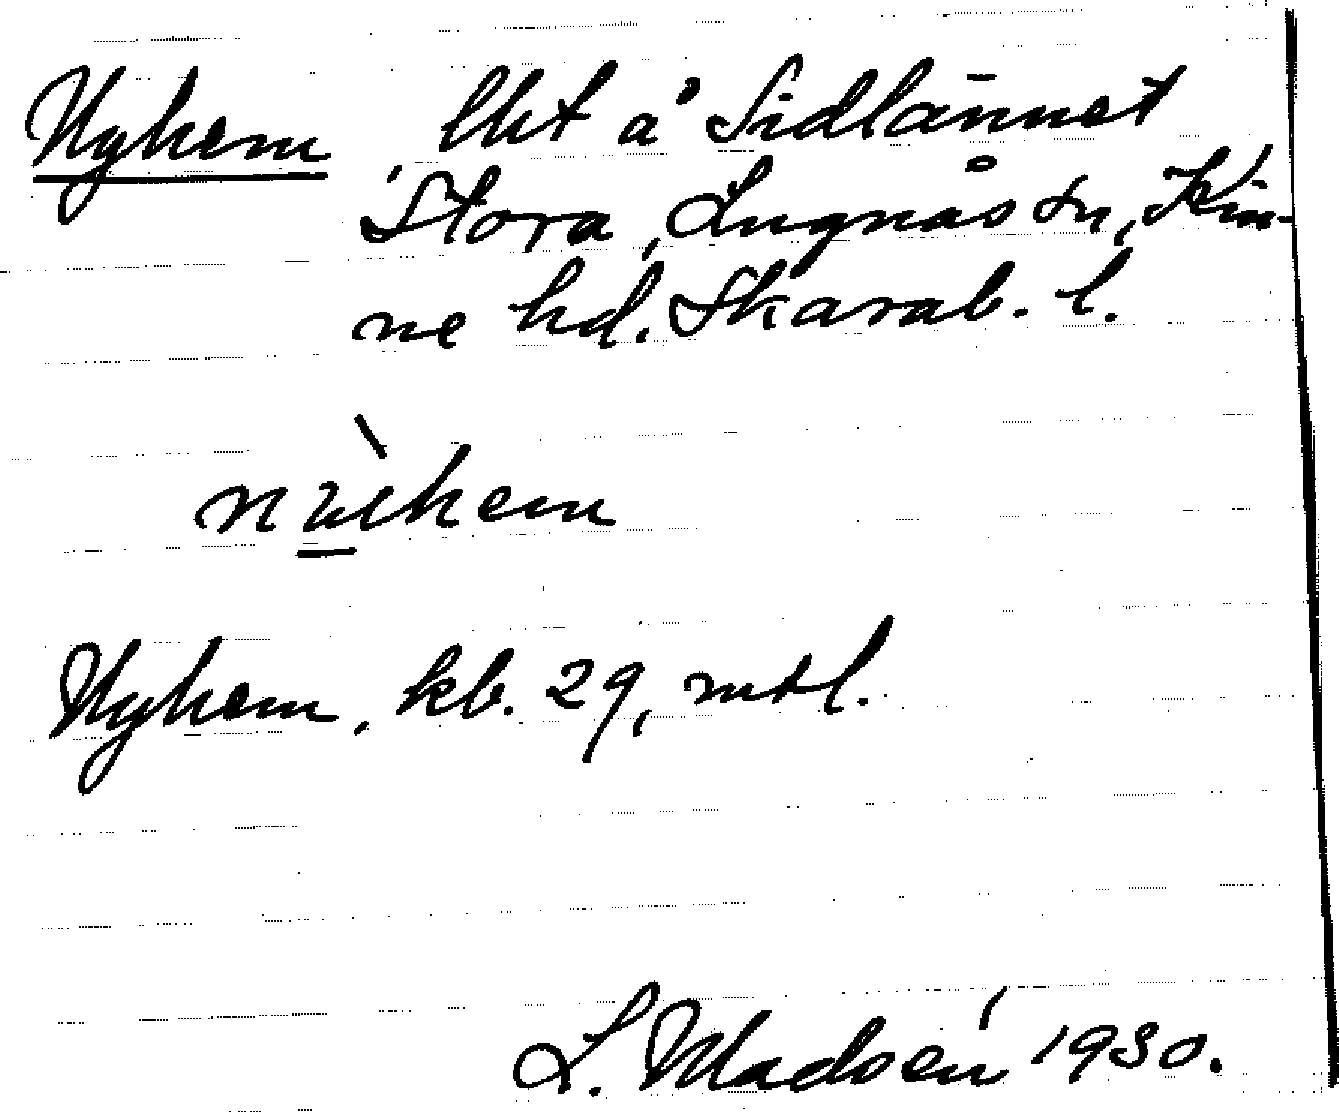 Nyhem, lht å Sidlännet
Stora, Lugnås sn, Kin-
ne hd. Skarab. l.
Nyhem, kb. 29, mtl.
L. Madsén 1930.